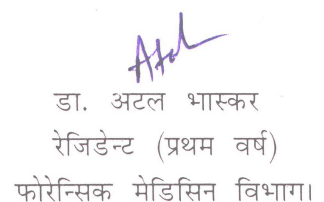 Atal
डा. अटल भास्कर
रेजिडेन्ट (प्रथम वर्ष)
फोरेन्सिक मेडिसिन विभाग।